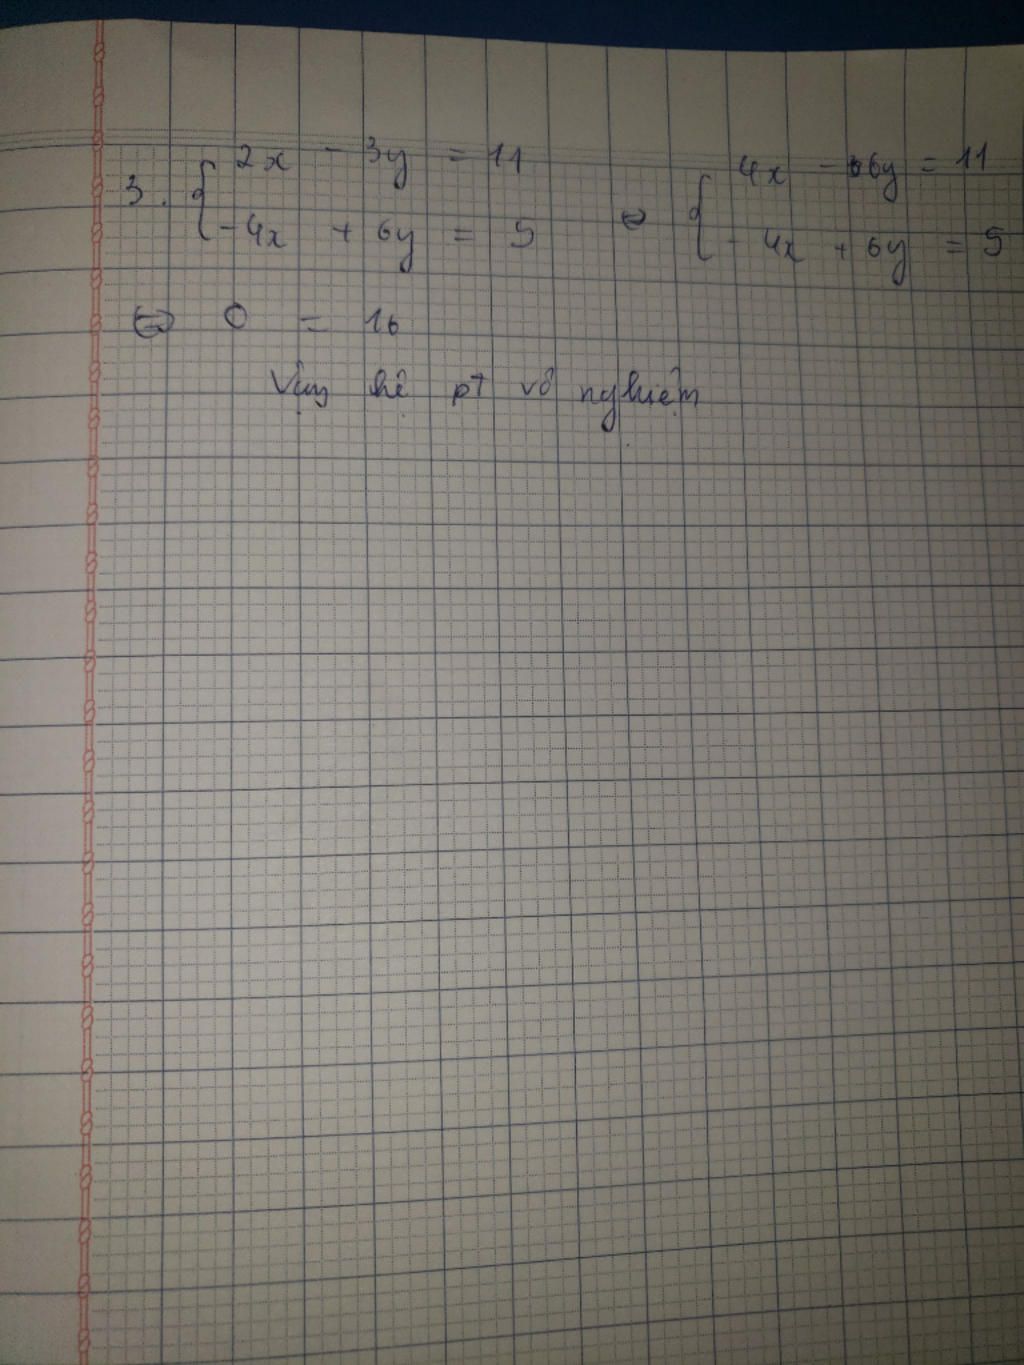 3. { 2x - 3y = 11 ⇔ { 4x - 6y = 11
-4x + 6y = 5 - 4x + 6y = 5
⇔ 0 = 16
Vậy hệ pt vô nghiệm